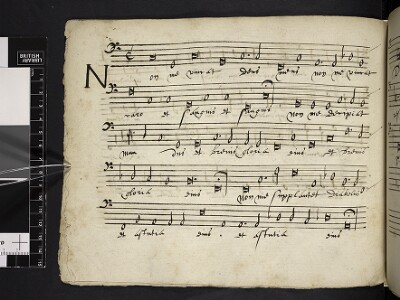 BRITISH
LIBRARY
Non me vincat deus meus non me vincat
caro et sanguis et sanguis non me decipiat
mundus et brevis gloria eius et brevis
gloria eius non me supplantet diabolus
et astutia eius . et astutia eius